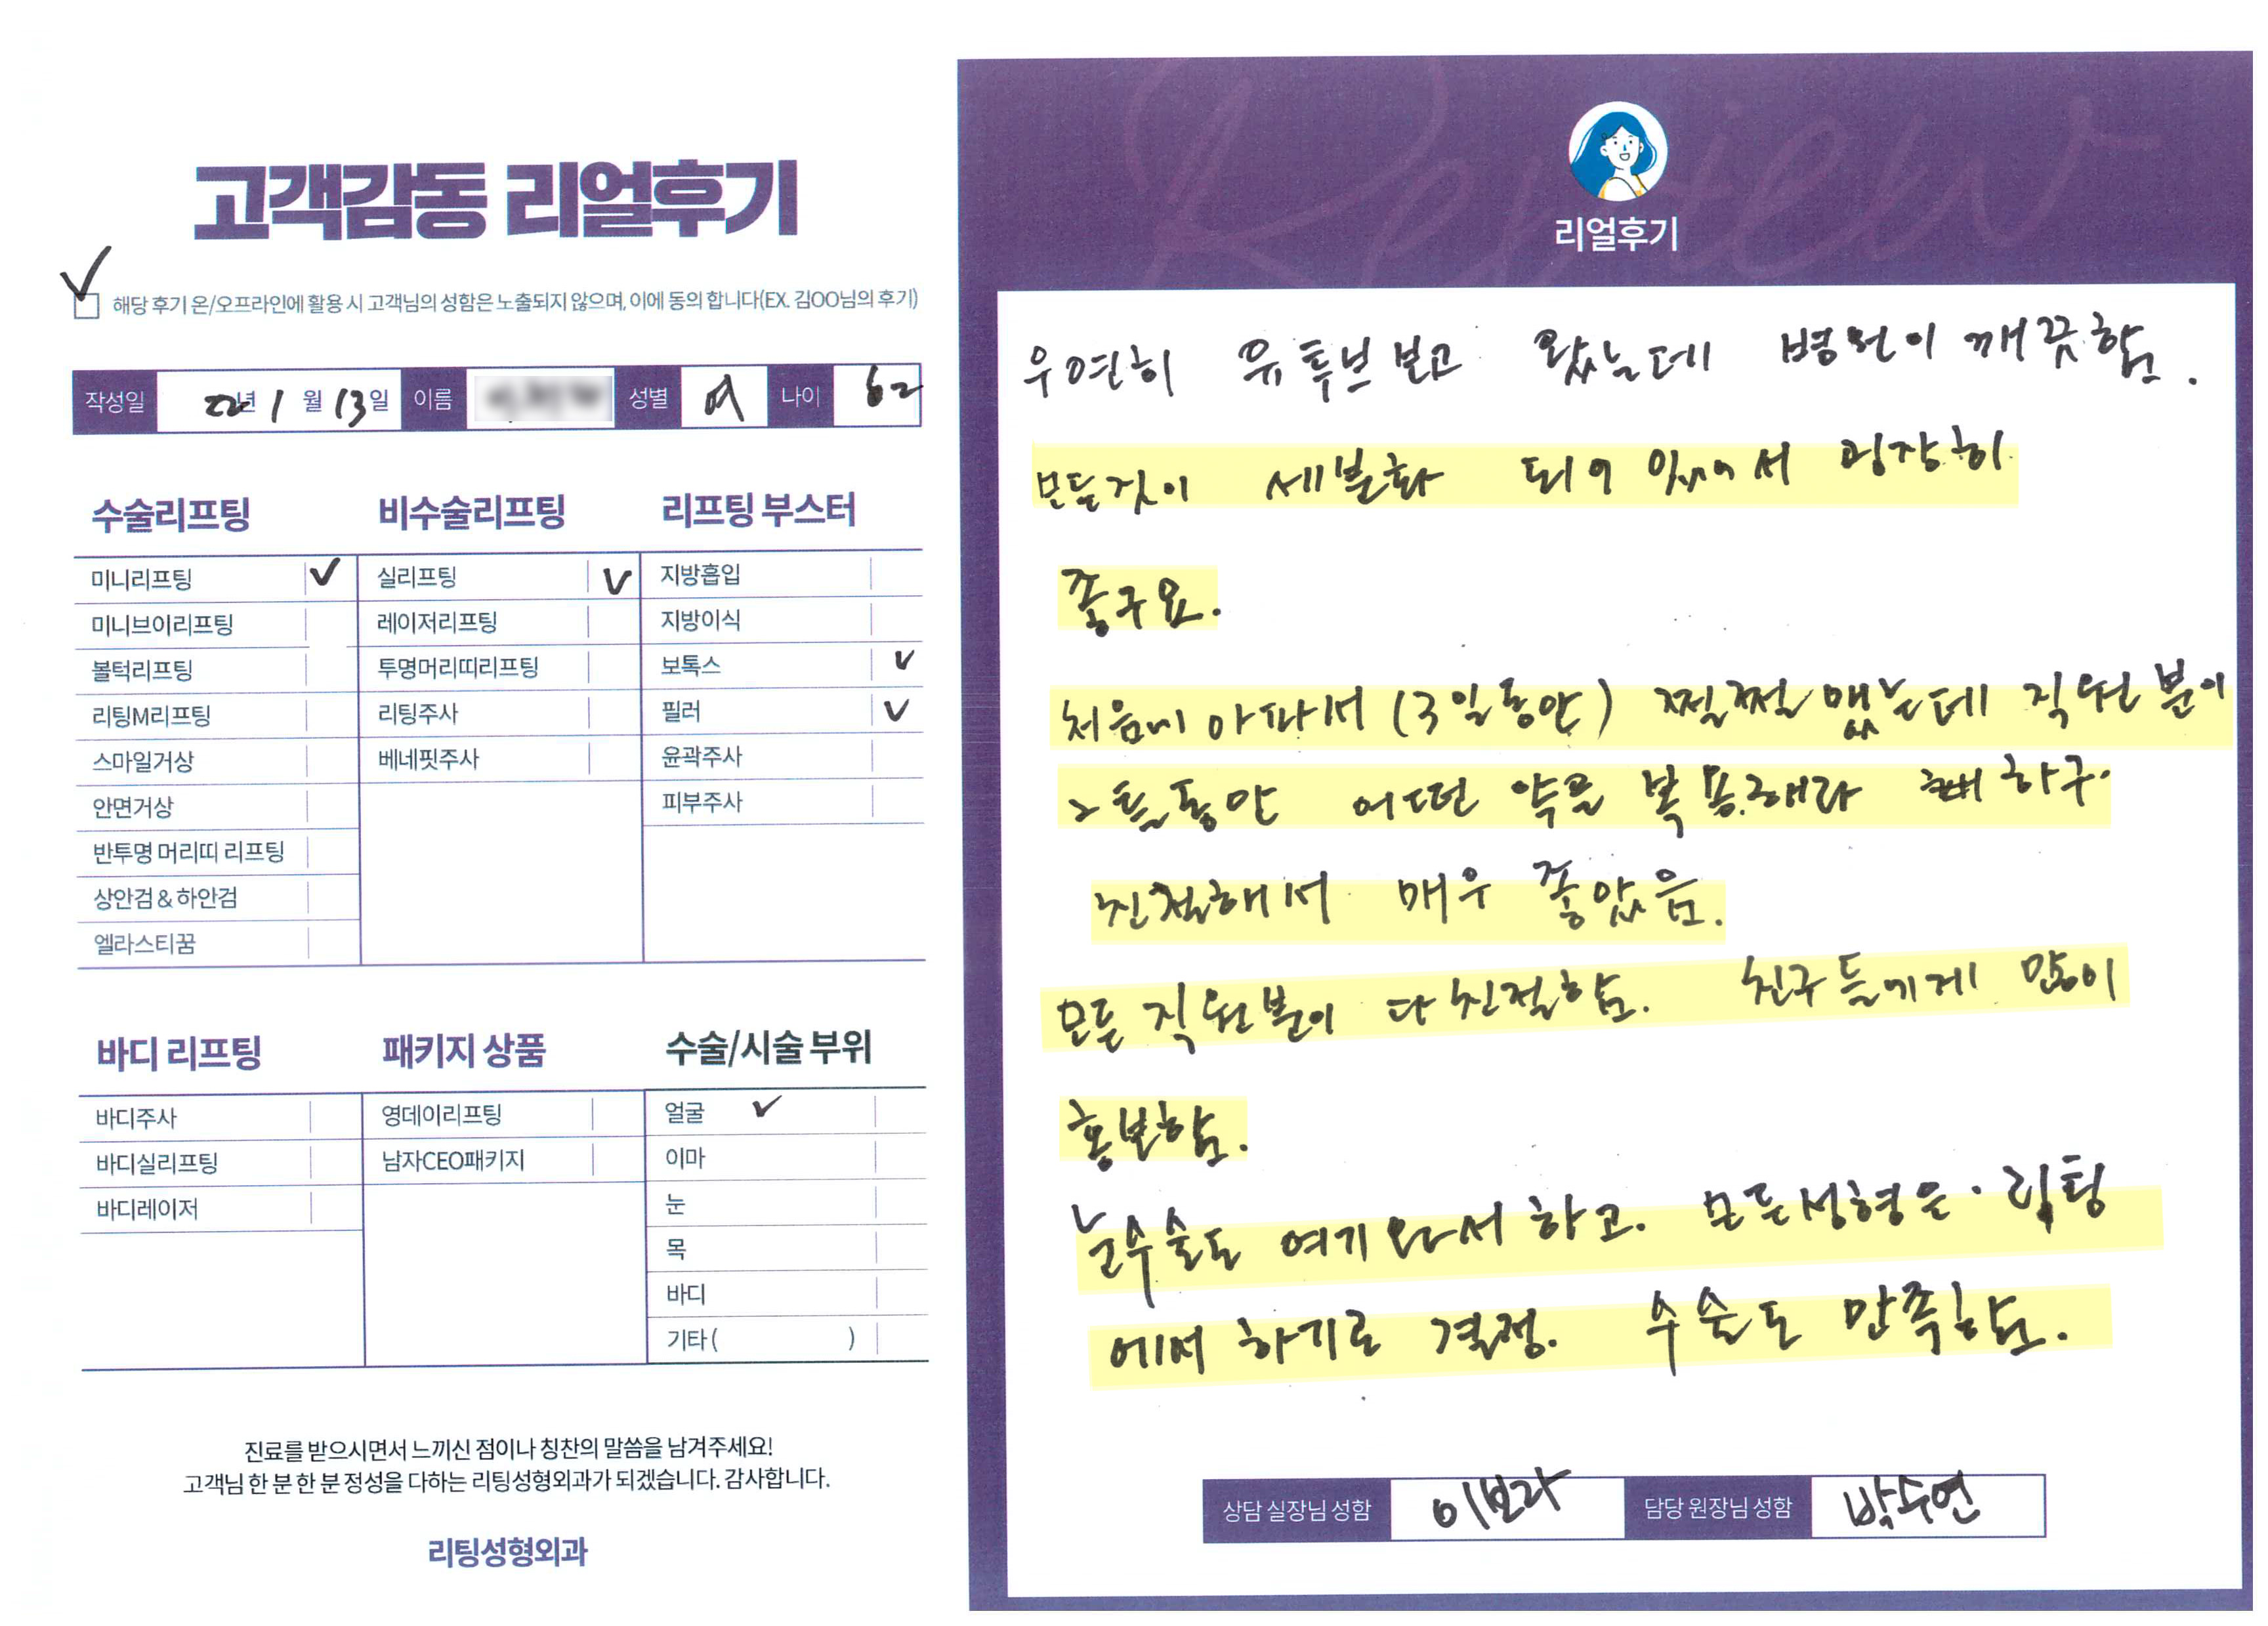 고객감동 리얼후기
해당 후기 온/오프라인에 활용 시 고객님의 성함은 노출되지 않으며, 이에 동의 합니다(EX. 김OO님의 후기)
작성일 22년 1월 13일 이름 성별 여 나이 62
수술리프팅 비수술리프팅 리프팅 부스터
미니리프팅 ✓ 실리프팅 ✓ 지방흡입
미니브이리프팅 레이저리프팅 지방이식
볼턱리프팅 투명머리띠리프팅 보톡스 ✓
리팅M리프팅 리팅주사 필러 ✓
스마일거상 베네핏주사 윤곽주사
안면거상 피부주사
반투명 머리띠 리프팅
상안검 & 하안검
엘라스티꿈
바디 리프팅 패키지 상품 수술/시술 부위
바디주사 영데이리프팅 얼굴 ✓
바디실리프팅 남자CEO패키지 이마
바디레이저 눈
목
바디
기타 ( )
진료를 받으시면서 느끼신 점이나 칭찬의 말씀을 남겨주세요!
고객님 한 분 한 분 정성을 다하는 리팅성형외과가 되겠습니다. 감사합니다.
리팅성형외과
Review
리얼후기
우연히 유투브 보고 왔는데 병원이 깨끗함.
모든것이 세분화 되어 있어서 굉장히
좋구요.
처음에 아파서 (3일동안) 쩔쩔 맸는데 직원분이
2틀동안 어떤 약을 복용해라 하구.
친절해서 매우 좋았음.
모든 직원분이 다 친절함. 친구들에게 많이
홍보함.
눈수술도 여기와서 하고. 모든성형은 리팅
에서 하기로 결정. 수술도 만족함.
상담 실장님 성함 이보라 담당 원장님 성함 박수연